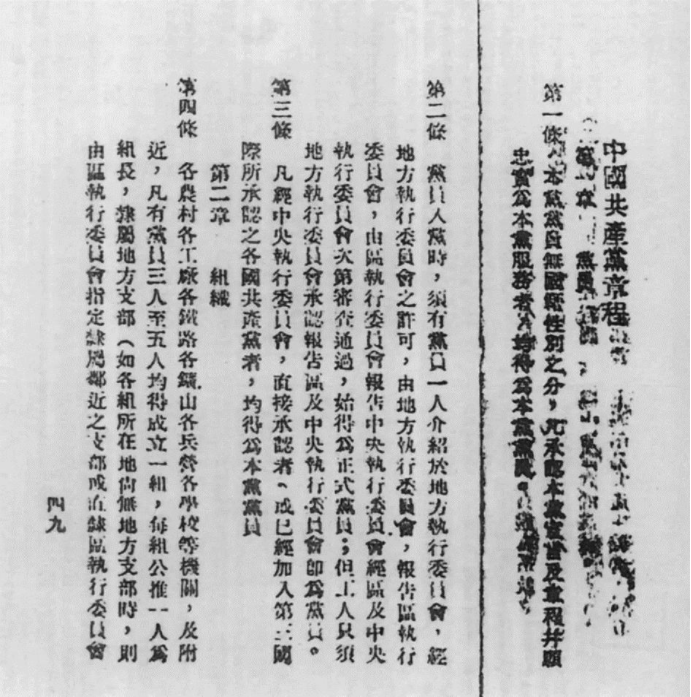 中國共產黨章程
第一章　黨員
第一條　本黨黨員無國籍性別之分，凡承認本黨宣言及章程并願
忠實爲本黨服務者，均得爲本黨黨員。
第二條　黨員入黨時，須有黨員一人介紹於地方執行委員會，經
地方執行委員會之許可，由地方執行委員會，報告區執行
委員會，由區執行委員會報告中央執行委員會經區及中央
執行委員會次第審查通過，始得爲正式黨員；但工人只須
地方執行委員會承認報告區及中央執行委員會卽爲黨員。
第三條　凡經中央執行委員會，直接承認者、或已經加入第三國
際所承認之各國共產黨者，均得爲本黨黨員
第二章　組織
第四條　各農村各工廠各鐵路各鑛山各兵營各學校等機關，及附
近，凡有黨員三人至五人均得成立一組，每組公推一人爲
組長，隸屬地方支部（如各組所在地尙無地方支部時，則
由區執行委員會指定隸屬鄰近之支部或直隸區執行委員會
四九